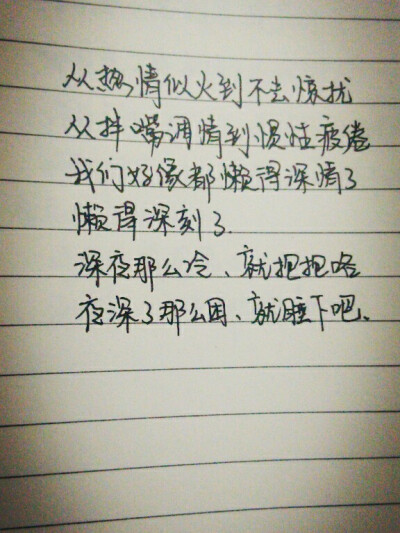 从热情似火到不去惊扰
从拌嘴调情到惯性疲倦
我们好像都懒得深情了
懒得深刻了.
深夜那么冷、就抱抱咯
夜深了那么困、就睡下吧、